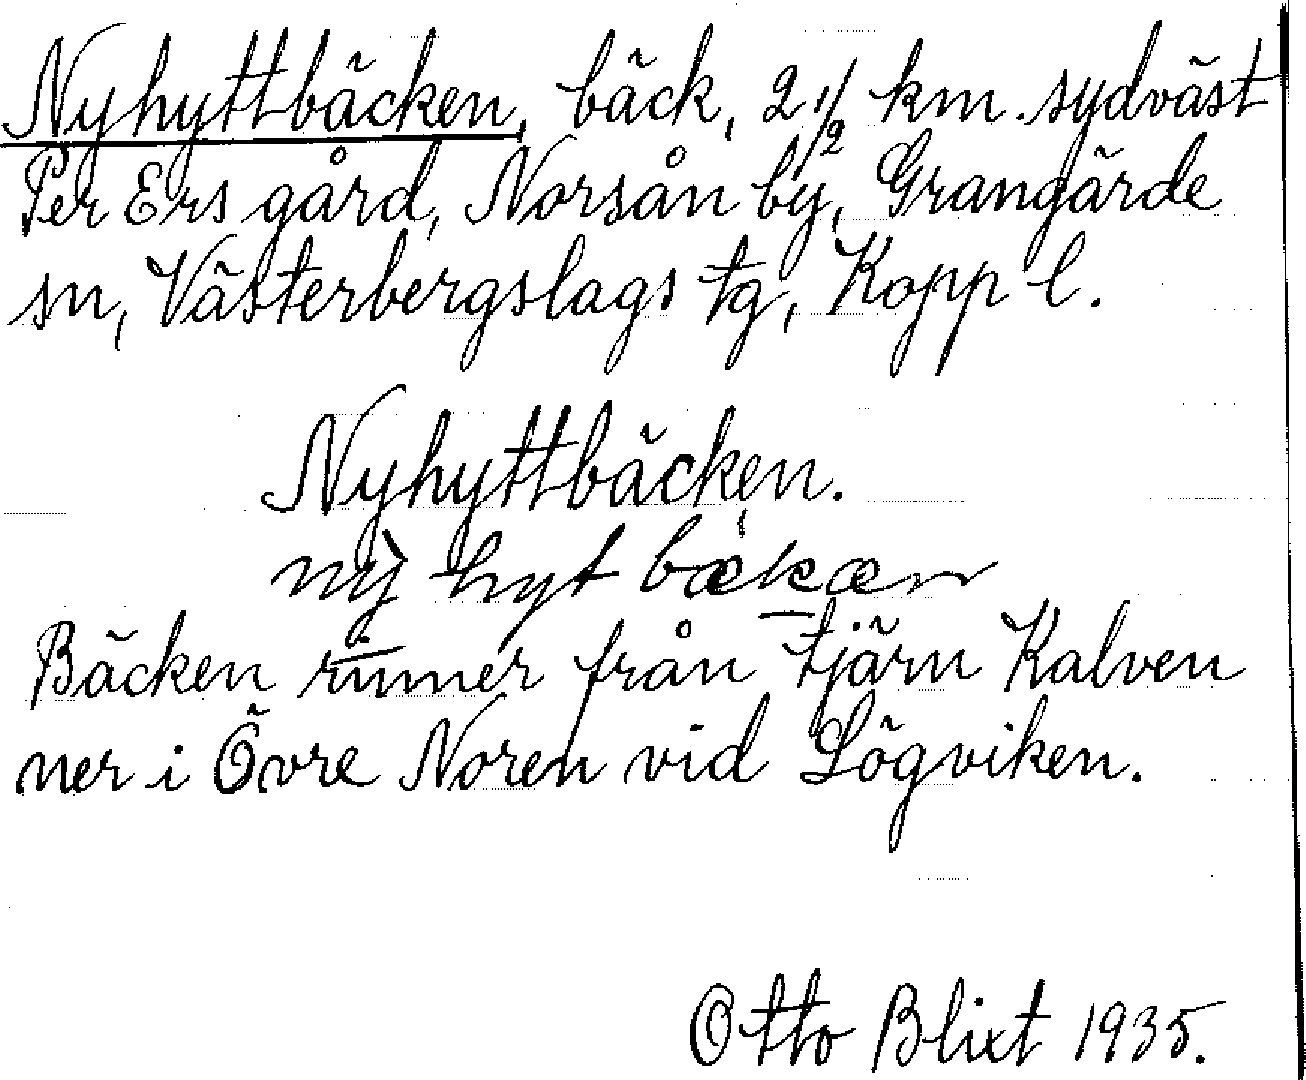 Nyhyttbäcken, bäck, 2 1/2 km. sydväst
Per Ers gård, Norsån by, Grangärde
sn, Västerbergslags tg, Kopp l.
Nyhyttbäcken.
nỳ hyt bækæn
Bäcken rinner från tjärn Kalven
ner i Övre Noren vid Lögviken.
Otto Blixt 1935.